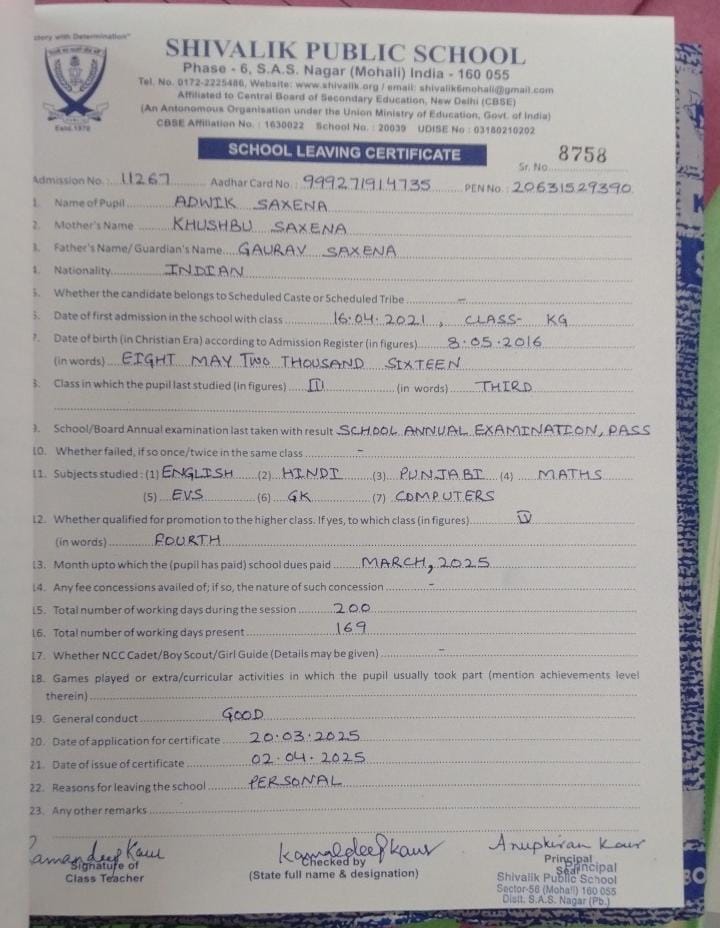 story with Determination"
SHIVALIK PUBLIC SCHOOL
Phase - 6, S.A.S. Nagar (Mohali) India - 160 055
Tel. No. 0172-2225486, Website: www.shivalik.org / email: shivalik6mohali@gmail.com
Affiliated to Central Board of Secondary Education, New Delhi (CBSE)
(An Antonomous Organisation under the Union Ministry of Education, Govt. of India)
CBSE Affiliation No. : 1630022 School No. : 20039 UDISE No : 03180210202
Estd. 1970
SCHOOL LEAVING CERTIFICATE
Sr. No. 8758
Admission No. : 11267 Aadhar Card No. : 999271914735 PEN No. : 20631529390
1. Name of Pupil ADWIK SAXENA
2. Mother's Name KHUSHBU SAXENA
3. Father's Name/ Guardian's Name GAURAV SAXENA
4. Nationality INDIAN
5. Whether the candidate belongs to Scheduled Caste or Scheduled Tribe –
6. Date of first admission in the school with class 16.04.2021, CLASS- KG
7. Date of birth (in Christian Era) according to Admission Register (in figures) 8.05.2016
(in words) EIGHT MAY TWO THOUSAND SIXTEEN
8. Class in which the pupil last studied (in figures) III (in words) THIRD
9. School/Board Annual examination last taken with result SCHOOL ANNUAL EXAMINATION, PASS
10. Whether failed, if so once/twice in the same class -
11. Subjects studied : (1) ENGLISH (2) HINDI (3) PUNJABI (4) MATHS
(5) EVS (6) GK (7) COMPUTERS
12. Whether qualified for promotion to the higher class. If yes, to which class (in figures) IV
(in words) FOURTH
13. Month upto which the (pupil has paid) school dues paid MARCH, 2025
14. Any fee concessions availed of; if so, the nature of such concession -
15. Total number of working days during the session 200
16. Total number of working days present 169
17. Whether NCC Cadet/Boy Scout/Girl Guide (Details may be given) -
18. Games played or extra/curricular activities in which the pupil usually took part (mention achievements level
therein)
19. General conduct GOOD
20. Date of application for certificate 20.03.2025
21. Date of issue of certificate 02.04.2025
22. Reasons for leaving the school PERSONAL
23. Any other remarks
amandeep Kaur Kamaldeep Kaur Anupkiran Kaur
Signature of Checked by Principal
Class Teacher (State full name & designation) Seal
Principal
Shivalik Public School
Sector-56 (Mohali) 160 055
Distt. S.A.S. Nagar (Pb.)